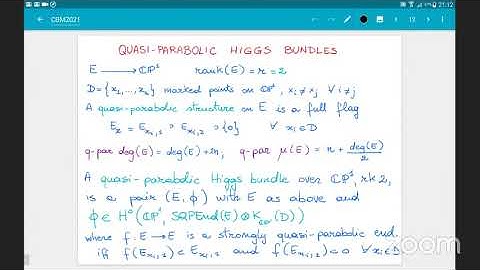 21:12
CBM2021
12
QUASI-PARABOLIC HIGGS BUNDLES
E ⟶ ℂℙ¹ rank(E) = r = 2
D = {x₁, ..., xₙ} marked points on ℂℙ¹, xᵢ ≠ xⱼ ∀ i ≠ j
A quasi-parabolic structure on E is a full flag
E_{xᵢ,1} ⊃ E_{xᵢ,2} ⊃ {0} ∀ xᵢ ∈ D
q-par deg(E) = deg(E) + 2n; q-par μ(E) = n + deg(E)/2
A quasi-parabolic Higgs bundle over ℂℙ¹, rk 2,
is a pair (E, φ) with E as above and
φ ∈ H⁰(ℂℙ¹, SQPEnd(E) ⊗ K_{ℂℙ¹}(D))
where f: E → E is a strongly quasi-parabolic end.
if f(E_{xᵢ,1}) ⊂ E_{xᵢ,2} and f(E_{xᵢ,2}) = 0 ∀ xᵢ ∈ D
zoom